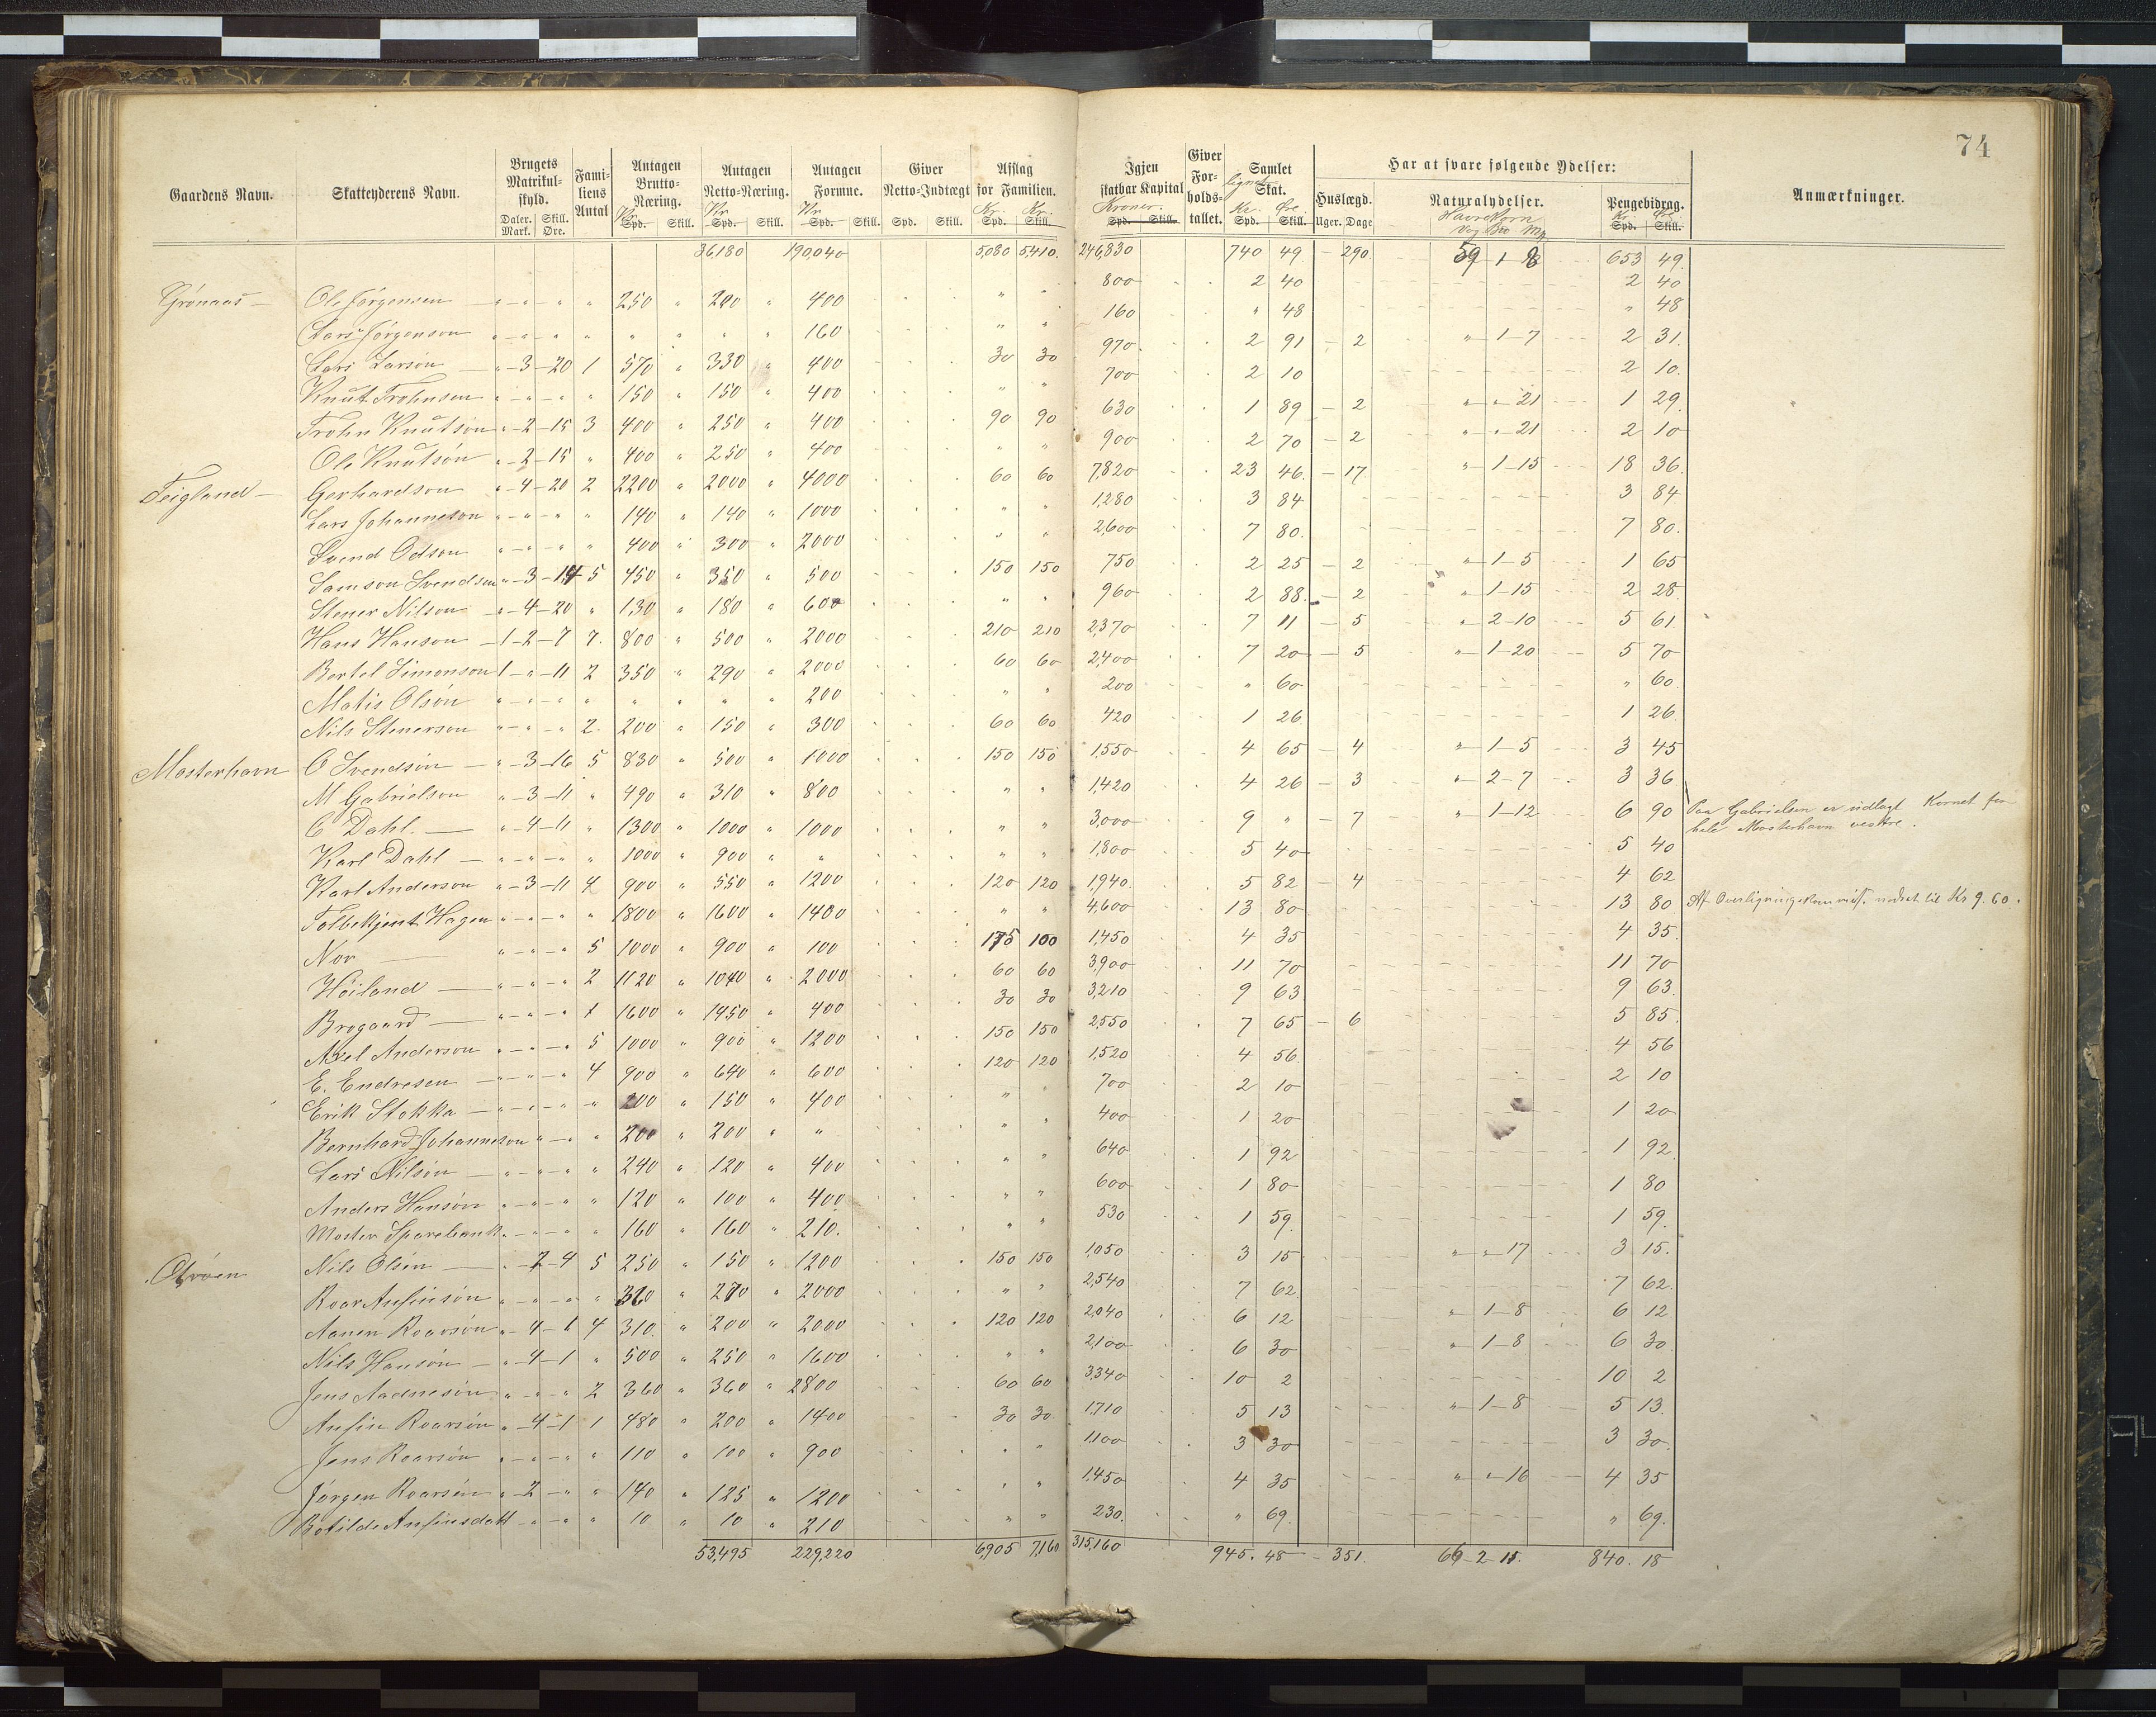 74
Gaardens Navn. Skatteyderens Navn. Brugets Matrikulskyld. Daler. Mark. Skill. Øre. Familiens Antal Antagen Brutto-Næring. Kr. Spd. Skill. Antagen Netto-Næring. Kr. Spd. Skill. Antagen Formue. Kr. Spd. Skill. Giver Netto-Indtægt Spd. Skill. Afslag for Familien. Kr. Spd. Kr. Skill. Igjen skatbar Kapital Kroner. Spd. Skill. Giver Forholdstallet. Samlet lignet Skat. Kr. Spd. Øre. Skill. Har at svare følgende Ydelser: Huslægd. Uger. Dage Naturalydelser. Havrekorn Vog Bio Mrk Pengebidrag. Kr. Spd. Øre. Skill. Anmærkninger.
36,180 190,040 5,080 5,410. 246,830 740 49 - 290. 59 1 8 653 49.
Grønaas - Ole Jørgensen " - " - " " 250 " 200 " 400 " " 800 2 40 2 40
Lars Jørgenson " - " - " " " " " " 160 " " 160 " 48 " 48
Lars Larsøn " - 3 - 20 1 570 " 330 " 400 30 30 970 2 91 - 2 " - 1 - 7 2 31.
Knut Trohnsen " - " - " " 150 " 150 " 400 " " 700 2 10 2 10.
Trohn Knutson " - 2 - 15 3 400 " 250 " 400 90 90 630 1 89 - 2 " - " 21 1 29.
Ole Knutsøn " - 2 - 15 " 400 " 250 " 400 " " 900 2 70 - 2 " - " 21 2 10
Teigland - Gerhardson " - 4 - 20 2 2200 " 2000 " 4000 60 60 7,820 23 46. - 17 " - 1 - 15 18 36.
Lars Johanneson " - " - " " 140 " 140 " 1000 " " 1,280 3 84 3 84
Svend Odson " - " - " " 400 " 300 " 2000 " " 2,600 7 80. 7 80.
Samson Svendsen " - 3 - 14 5 450 " 350 " 500 150 150 750 2 25 - 2 " - 1 - 5 1 65
Stener Nilson " - 4 - 20 " 130 " 180 " 600 " " 960 2 88. - 2 " 1 - 15 2 28
Hans Hanson - 1 - 2 - 7 7. 800 " 500 " 2000 210 210 2,370 7 11 - 5 " 2 - 10 5 61
Bertel Simonson 1 - " - 11 2 350 " 290 " 2000 60 60 2,400 7 20 - 5 " - 1 - 20 5 70
Matis Olsøn " - " - " " " " " " 200 " " 200 " 60 " 60.
Nils Stenerson " - " - " 2. 200 " 150 " 300 60 60 420 1 26 1 26
Mosterhavn O Svendsøn - " - 3 - 16 5 830 " 500 " 1000 150 150 1,550 4 65 - 4 " - 1 - 5 3 45
M Gabrielson " - 3 - 11 " 490 " 310 " 800 " " 1,420 4 26 - 3 " 2 - 7 3 36
C Dahl. - " - 4 - 11 " 1300 " 1000 " 1000 " " 3,000 9 " - 7 " 1 - 12 6 90 Paa Gabrielsen er udlagt Kornet for
hele Mosterhavn vestre.
Karl Dahl - " - " - " " 1000 " 900 " " " " 1,800 5 40 5 40
Karl Anderson " - 3 - 11 4 900 " 550 " 1200 120 120 1,940. 5 82 - 4 4 62
Tolbekjent Hagen " - " - " " 1800 " 1600 " 1400 " " 4,600 13 80 13 80 Af Overligningskommiss. nedsat til Kr 9.60.
Nor - " - " - " 5 1000 " 900 " 100 175 100 1,450 4 35 4 35.
Höiland - " - " - " 2 1120 " 1040 " 2000 60 60 3,900 11 70 11 70
Brogaard - " - " - " 1 1600 " 1450 " 400 30 30 3,210 9 63 9 63.
Axel Anderson " - " - " 5 1000 " 900 " 1200 150 150 2,550 7 65 - 6 5 85.
E. Endresen " - " - " 4 900 " 640 " 600 120 120 1,520 4 56. 4 56
Erik Stokka - " - " - " " 200 " 150 " 400 " " 700 2 10 2 10
Bernhard Johanneson " - " - " 200 " 200 " " " " 400 1 20 1 20
Lars Nilsøn - " - " - " " 240 " 120 " 400 " " 640 1 92 1 92.
Anders Hansøn " - " - " " 120 " 100 " 400. " " 600 1 80 1 80
Moster Sparebank " - " - " " 160 " 160 " 210. " " 530 1 59. 1 59.
Nils Olsen - " - 2 - 4 5 250 " 150 " 1200 150 150 1,050 3 15 " " - 17 3 15.
Roar Anfinsøn " - " - " " 320 " 270 " 2000 " " 2,540 7 62 7 62.
Aanen Roarsøn " - 4 - 1 4 310. " 200 " 2000 120 120 2,040 6 12 " 1 - 8 6 12
Nils Hansøn - " - 4 - 1 " 500 " 250 " 1600 " " 2,100 6 30 " 1 - 8 6 30.
Jens Aadnesøn " - " - " 2 360 " 360 " 2800 60 60 3,340 10 2 10 2
Anfin Roarsøn " - 4 - 1 1 480 " 200 " 1400 30 30 1,710 5 13 " 1 - 8 5 13.
Jens Roarsøn " - " - " " 110 " 100 " 900 " " 1,100 3 30 3 30.
Jørgen Roarsøn " - 2 - " " 140 " 125 " 1200 " " 1,450 4 35 " " 16 4 35
Botilde Anfinsdatt " - " - " " 10 " 10 " 210 " " 230. " 69. " 69.
53,495 229,220 6,905 7,160 315,160 945. 48 - 351. 69 - 2 - 15. 840. 18